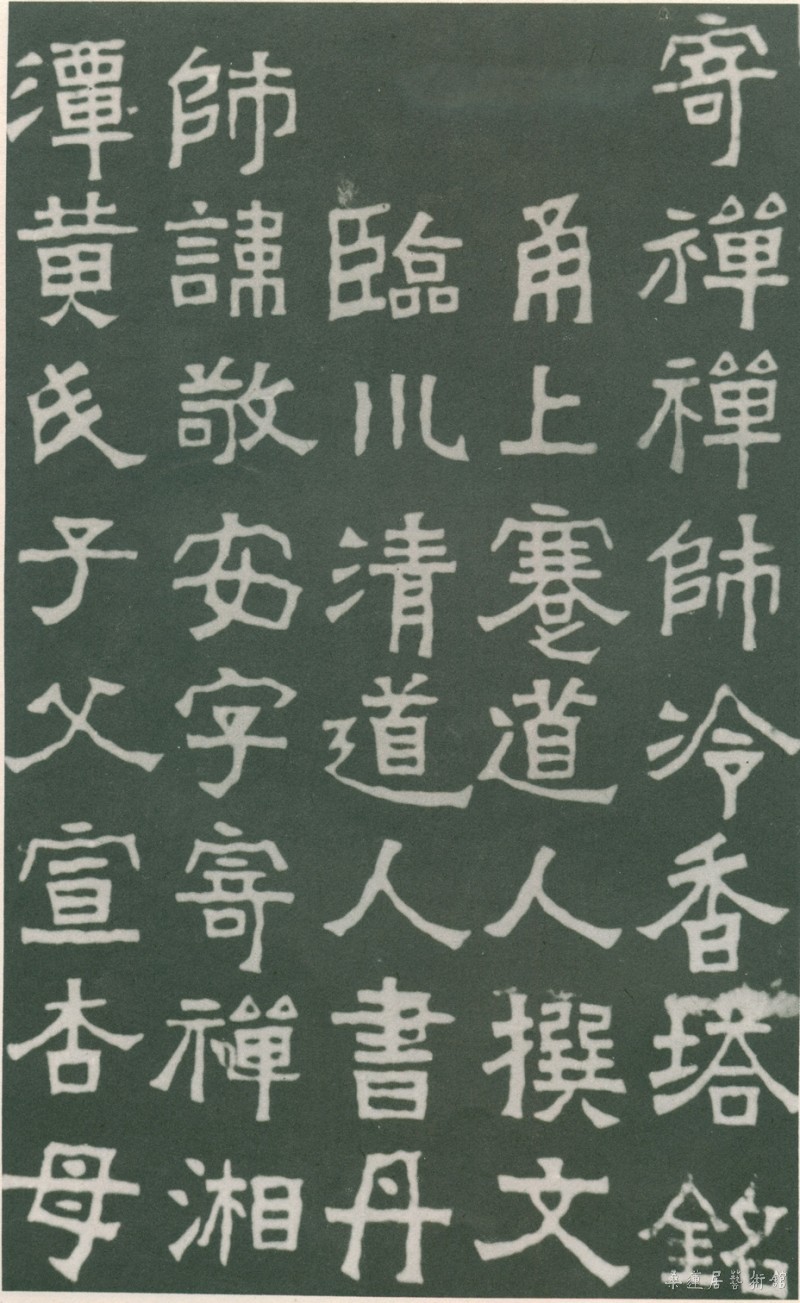 寄禪禪師泠香塔銘
甬上蹇道人撰文
臨川清道人書丹
師諱敬安字寄禪湘
潭黄氏子父宣杏母
桑蓮居藝術館